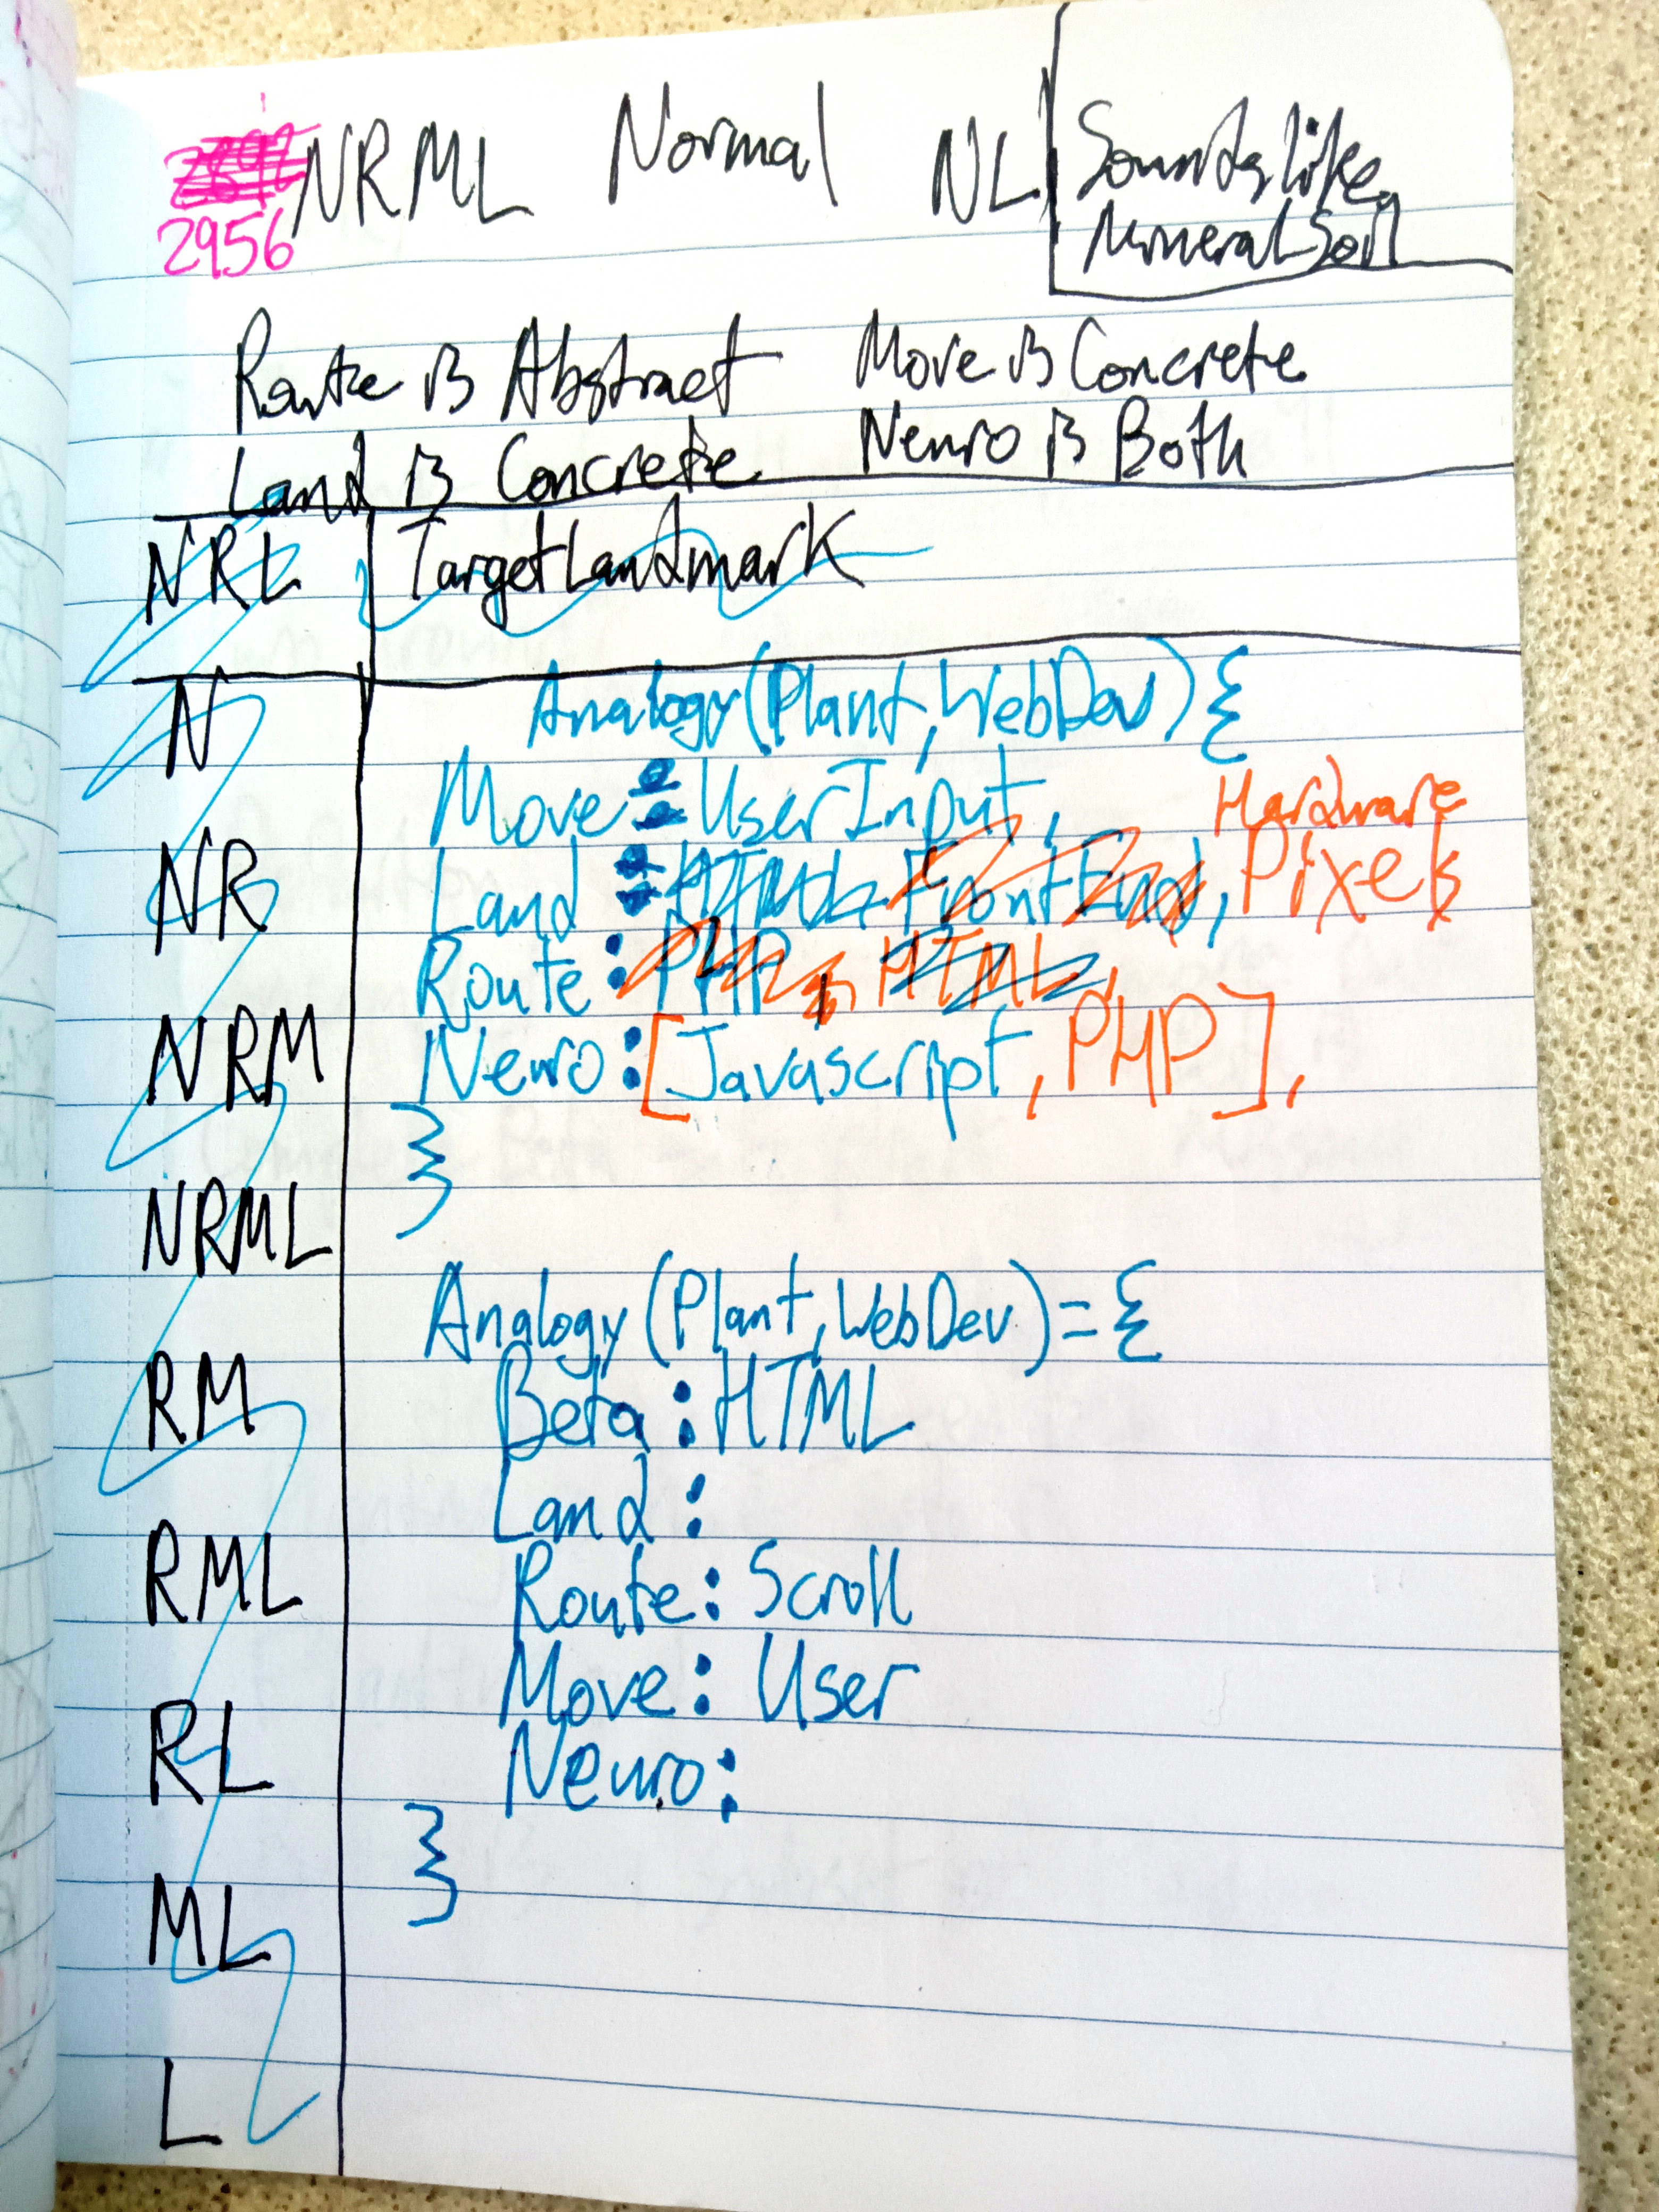 NRML Normal NL
Sounds like
Mineral Soil
2956
Route is Abstract Move is Concrete
Land is Concrete Neuro is Both
NRL TargetLandmark
N Analogy(Plant, WebDev) {
Move : UserInput,
Hardware
NR Land : HTML FrontEnd, Pixels
Route : PHP, HTML,
NRM Neuro : [Javascript, PHP],
}
NRML
Analogy (Plant, WebDev) = {
RM Beta : HTML
Land :
RML Route : Scroll
Move : User
RL Neuro :
}
ML
L